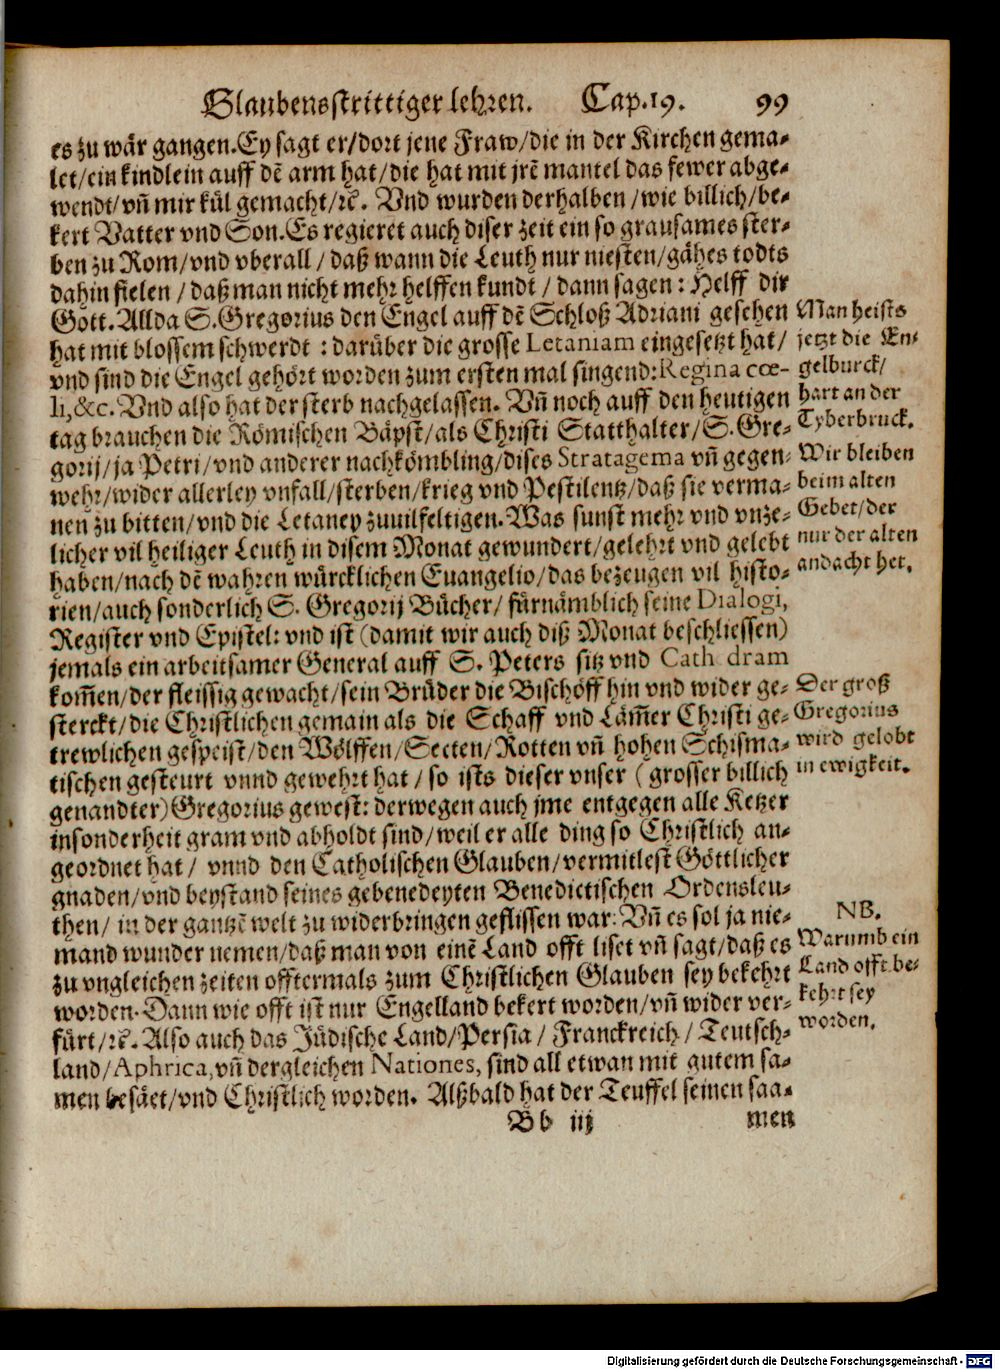 Glaubensstrittiger lehren. Cap. 19. 99
es zu wär gangen. Ey sagt er/dort jene Fraw/die in der Kirchen gema-
let/ein kindlein auff dẽ arm hat/die hat mit jrẽ mantel das fewer abge-
wendt/vñ mir kül gemacht/ꝛc̃. Vnd wurden derhalben/wie billich/be-
kert Vatter vnd Son. Es regieret auch diser zeit ein so grausames ster-
ben zu Rom/vnd vberall/daß wann die Leuth nur niesten/gähes todts
dahin fielen/daß man nicht mehr helffen kundt/dann sagen: Helff dir
Gott. Allda S. Gregorius den Engel auff dẽ Schloß Adriani gesehen
hat mit blossem schwerdt: darüber die grosse Letaniam eingesetzt hat/
vnd sind die Engel gehört worden zum ersten mal singend: Regina cœ-
li, &c. Vnd also hat der sterb nachgelassen. Vñ noch auff den heutigen
tag brauchen die Römischen Bäpst/als Christi Statthalter/S. Gre-
gorij/ja Petri/vnd anderer nachkömbling/dises Stratagema vñ gegen-
wehr/wider allerley vnfall/sterben/krieg vnd Pestilentz/daß sie verma-
nen zu bitten/vnd die Letaney zuuilfeltigen. Was sunst mehr vnd vnze-
licher vil heiliger Leuth in disem Monat gewundert/gelehrt vnd gelebt
haben/nach dẽ wahren würcklichen Euangelio/das bezeugen vil histo-
rien/auch sonderlich S. Gregorij Bücher/fürnämblich seine Dialogi,
Register vnd Epistel: vnd ist (damit wir auch diß Monat beschliessen)
jemals ein arbeitsamer General auff S. Peters sitz vnd Cath dram
kom̃en/der fleissig gewacht/sein Brüder die Bischöff hin vnd wider ge-
sterckt/die Christlichen gemain als die Schaff vnd Läm̃er Christi ge-
trewlichen gespeist/den Wölffen/Secten/Rotten vñ hohen Schisma-
tischen gesteurt vnnd gewehrt hat/so ists dieser vnser (grosser billich
genandter) Gregorius gewest: derwegen auch jme entgegen alle Ketzer
insonderheit gram vnd abholdt sind/weil er alle ding so Christlich an-
geordnet hat/vnnd den Catholischen Glauben/vermitlest Göttlicher
gnaden/vnd beystand seines gebenedeyten Benedictischen Ordensleu-
then/in der gantzẽ welt zu widerbringen geflissen war: Vñ es sol ja nie-
mand wunder nemen/daß man von einẽ Land offt liset vñ sagt/daß es
zu vngleichen zeiten offtermals zum Christlichen Glauben sey bekehrt
worden. Dann wie offt ist nur Engelland bekert worden/vñ wider ver-
fürt/ꝛc̃. Also auch das Jüdische Land/Persia/Franckreich/Teutsch-
land/Aphrica, vñ dergleichen Nationes, sind all etwan mit gutem sa-
men besäet/vnd Christlich worden. Alßbald hat der Teuffel seinen saa-
Bb iij men
Man heists
jetzt die En-
gelburck/
hart an der
Tyberbruck.
Wir bleiben
beim alten
Gebet/der
nur der alten
andacht het.
Der groß
Gregorius
wird gelobt
in ewigkeit.
NB.
Warumb ein
Land offt be-
kehrt sey
worden.
Digitalisierung gefördert durch die Deutsche Forschungsgemeinschaft - DFG